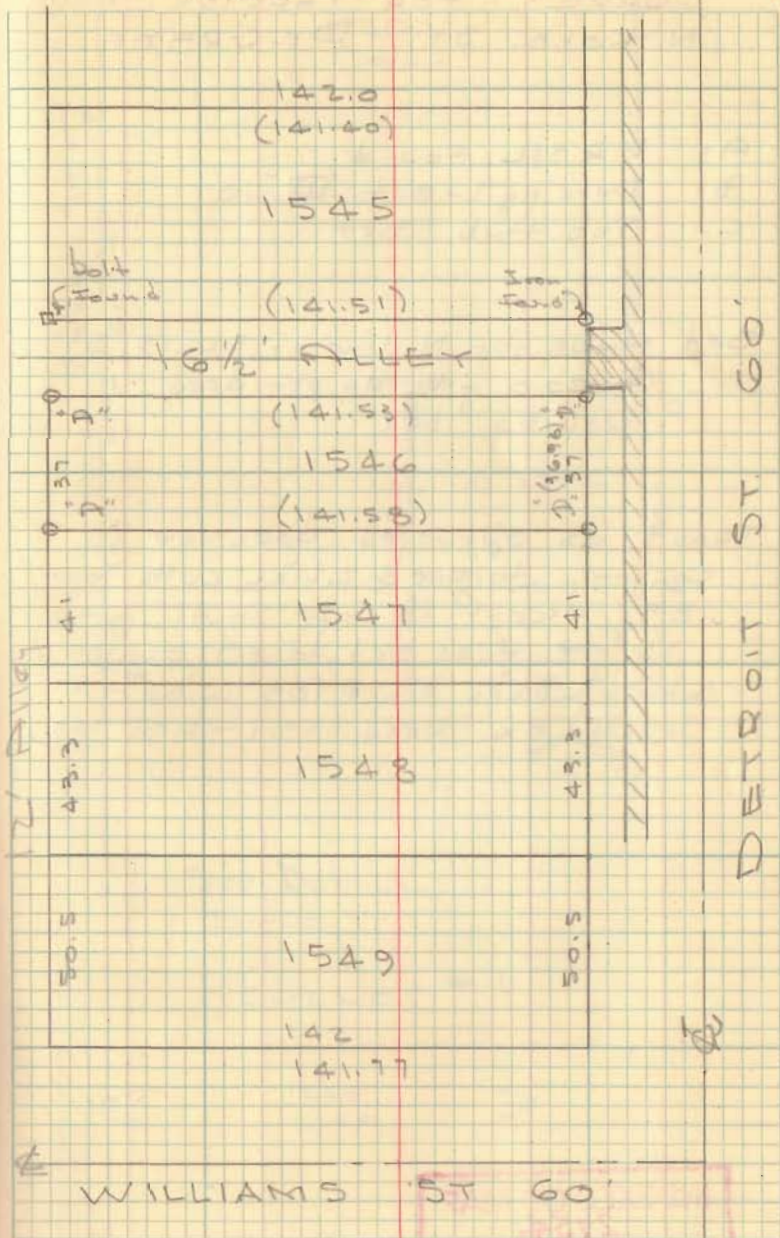 142.0
(141.40)
1545
bolt
Found
Iron
Found
(141.51)
16 1/2' ALLEY
"A"
(141.53)
"D"
37
1546
(36.98)
37
"A"
(141.58)
"D"
41
1547
41
12' Alley
43.3
1548
43.3
50.5
1549
50.5
142
141.77
DETROIT ST. 60'
WILLIAMS ST 60'